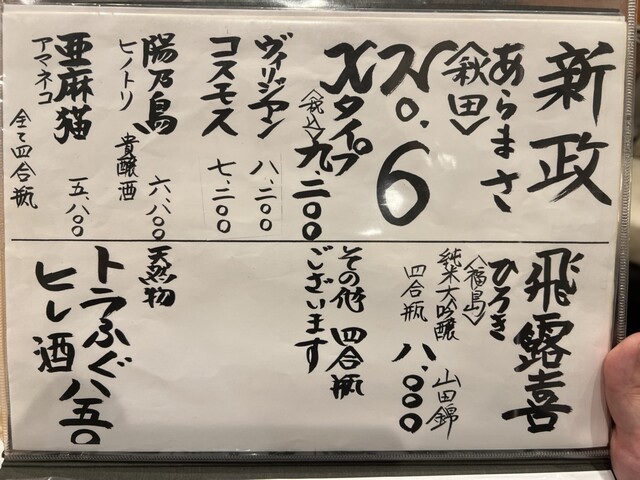 新政
あらまさ
〈秋田〉
No.6
Xタイプ
〈税込〉九、二〇〇
ヴィリジアン
八、二〇〇
コスモス
七、二〇〇
陽乃鳥
ヒノトリ
貴醸酒
六、八〇〇
亜麻猫
アマネコ
五、八〇〇
全て四合瓶
飛露喜
ひろき
〈福島〉
純米大吟醸 山田錦
四合瓶 八、〇〇〇
その他 四合瓶
ございます
天然物
トラふぐ
ヒレ酒 八五〇